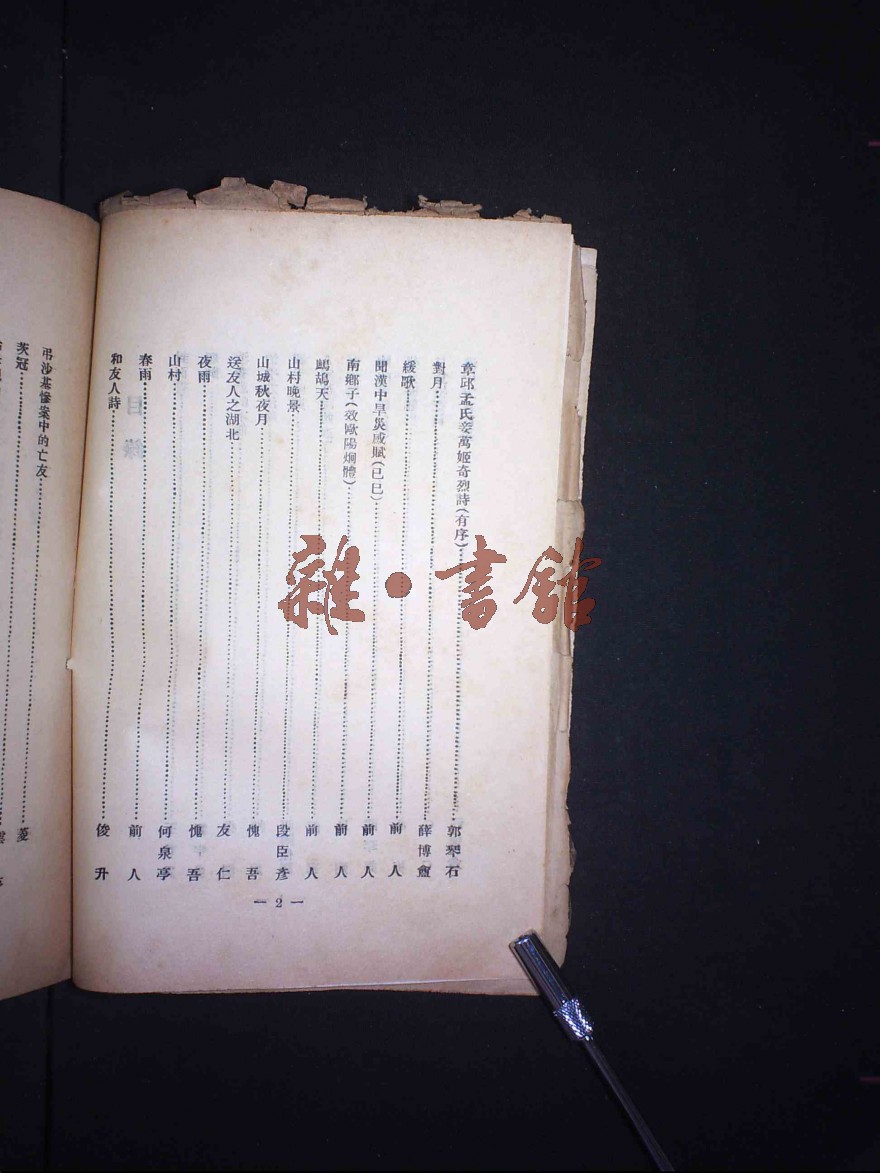 章邱孟氏妾萬姬奇烈詩(有序)……郭琴石
對月……薛博
緩歌……前人
聞漢中旱災感賦(己巳)……前人
南鄉子(效歐陽烱體)……前人
鷓鴣天……前人
山村晚景……段臣彥
山城秋夜月……愧吾
送友人之湖北……友仁
夜雨……愧吾
山村……何泉亭
春雨……前人
和友人詩……俊升
— 2 —
弔沙基慘案中的亡友
茨冠……菱
目錄
雜·書舘